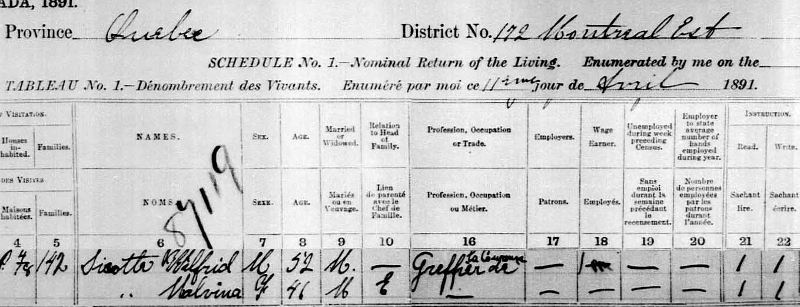 ADA, 1891.
Province Quebec District No. 172 Montreal Est
SCHEDULE No. 1.—Nominal Return of the Living. Enumerated by me on the
TABLEAU No. 1.—Dénombrement des Vivants. Enuméré par moi ce 11ème jour de Avril 1891.
VISITATION. NAMES. SEX. AGE. Married or Widowed. Relation to Head of Family. Profession, Occupation or Trade. Employers. Wage Earner. Unemployed during week preceding Census. Employer to state average number of hands employed during year. INSTRUCTION.
Houses in-habited. Families. Read. Write.
8/119
DES VISITES NOMS. SEXE. AGE. Mariés ou en Veuvage. Lien de parenté avec le Chef de Famille. Profession, Occupation ou Métier. Patrons. Employés. Sans emploi durant la semaine précédant le recensement. Nombre de personnes employées par les patrons durant l'année.
Maisons habitées. Familles. Sachant lire. Sachant écrire.
4 5 6 7 8 9 10 16 17 18 19 20 21 22
142 Sicotte Wilfrid M. 52 M. — Greffier de la Couronne — 1 — — 1 1
" Malvina F 41 M E — — — — — 1 1